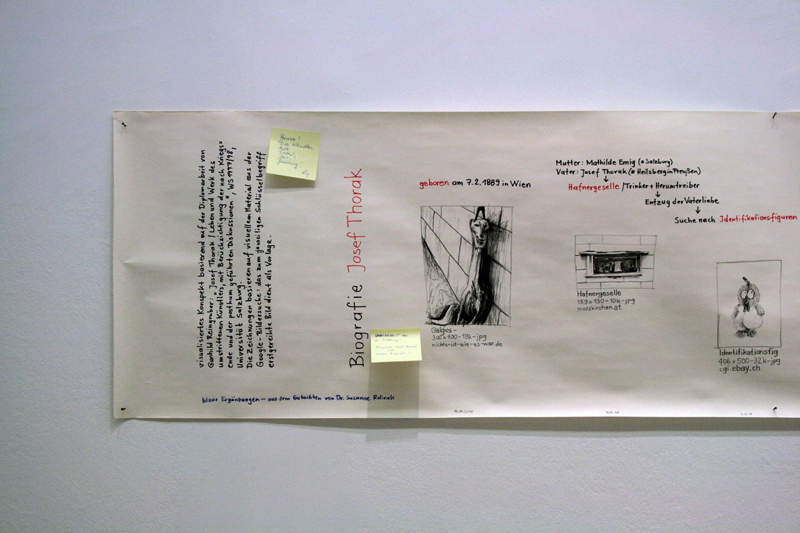 visualisiertes Konspekt basierend auf der Diplomarbeit von
Gunhild Reingruber: „Josef Thorak / Leben und Werk des
umstrittenen Künstlers, mit Berücksichtigung der nach Kriegs=
ente und der posthum geführten Diskussionen", WS 1997/98,
Universität Salzburg.
Die Zeichnungen basieren auf visuellem Material aus der
Google-Bildersuche: das zum jeweiligen Schlüsselbegriff
erstgereihte Bild dient als Vorlage.
blaue Ergänzungen — aus dem Gutachten von Dr. Susanne
Biografie Josef Thorak
geboren am 7.2.1889 in Wien
Mutter: Mathilde Emig (* Salzburg)
Vater: Josef Thorak (* Heilsberg in Preußen)
↓
Hafnergeselle / Trinker + Herumtreiber
↓
Entzug der Vaterliebe
↓
Suche nach Identifikationsfiguren
nichts-ist-wie-es-war.de
Hafnergeselle
mooskirchen.at
Identifikationsfig
406 x 500-32k-jpg
cgi.ebay.ch